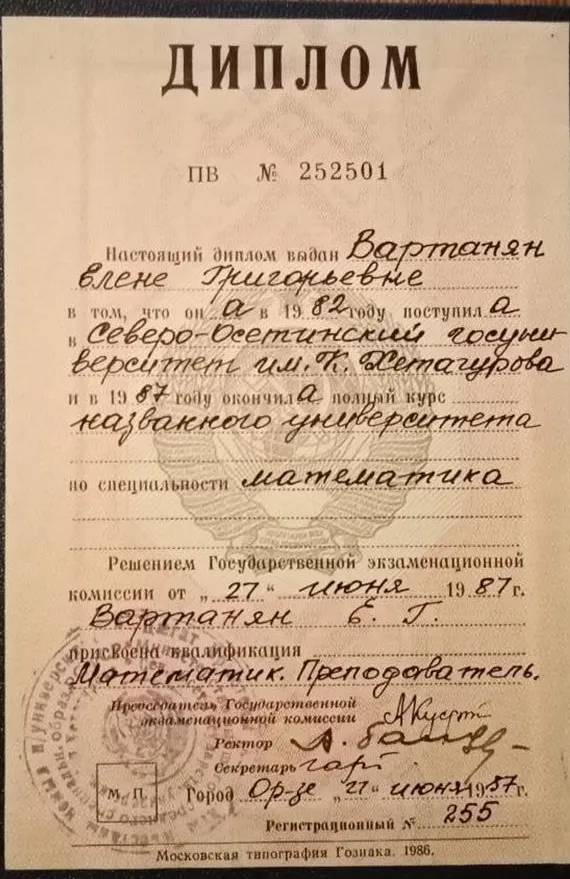 ДИПЛОМ
ПВ № 252501
Настоящий диплом выдан Вартанян
Елене Григорьевне
в том, что он а в 19 82 году поступил а
в Северо-Осетинский госуни-
верситет им. К. Хетагурова
и в 19 87 году окончил а полный курс
названного университета
по специальности математика
Решением Государственной экзаменационной
комиссии от „ 27 “ июня 19 87 г.
Вартанян Е. Г.
присвоена квалификация
Математик. Преподаватель.
Председатель Государственной
экзаменационной комиссии
Ректор
Секретарь
М. П.
Город Ор-зе июня 19 87 г.
Регистрационный № 255
Московская типография Гознака. 1986.